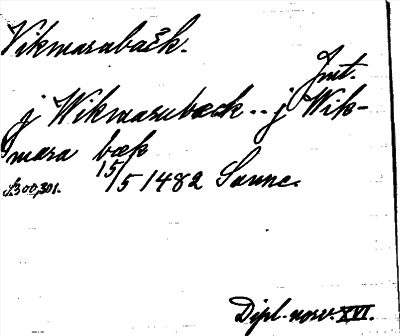 Vikmarabačk.
Jmt.
j Wikmarubæck.. j Wik-
mara bæk
15/5 1482 Sunne.
s. 300, 301.
Dipl. norv. XVI.